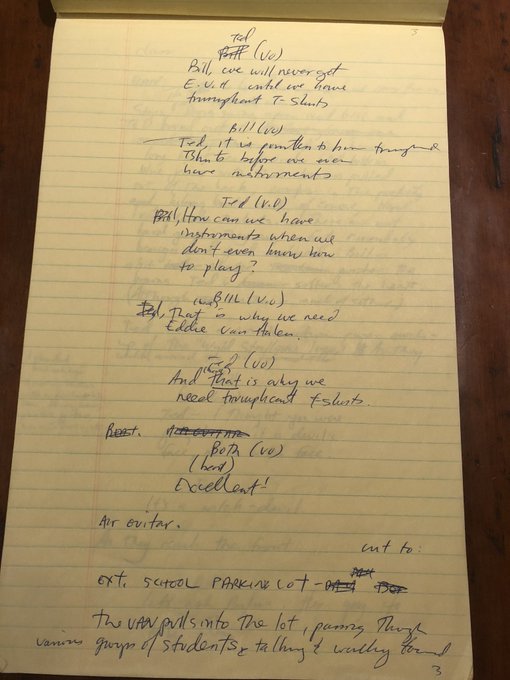 3
Ted
(VO)
Bill, we will never get
E.V.H until we have
triumphant T-shirts
Bill (VO)
Ted, it is pointless to have triumphant
Tshirts before we even
have instruments
Ted (V.O)
Bill, How can we have
instruments when we
don't even know how
to play?
Bill (V.O)
Ted, That is why we need
Eddie Van Halen.
Ted (VO)
And That is why we
need triumphant t-shirts.
Both (VO)
Excellent!
Air Guitar.
cut to:
EXT. SCHOOL PARKING LOT -
The VAN pulls into the lot, passing through
various groups of students talking & walking toward
3